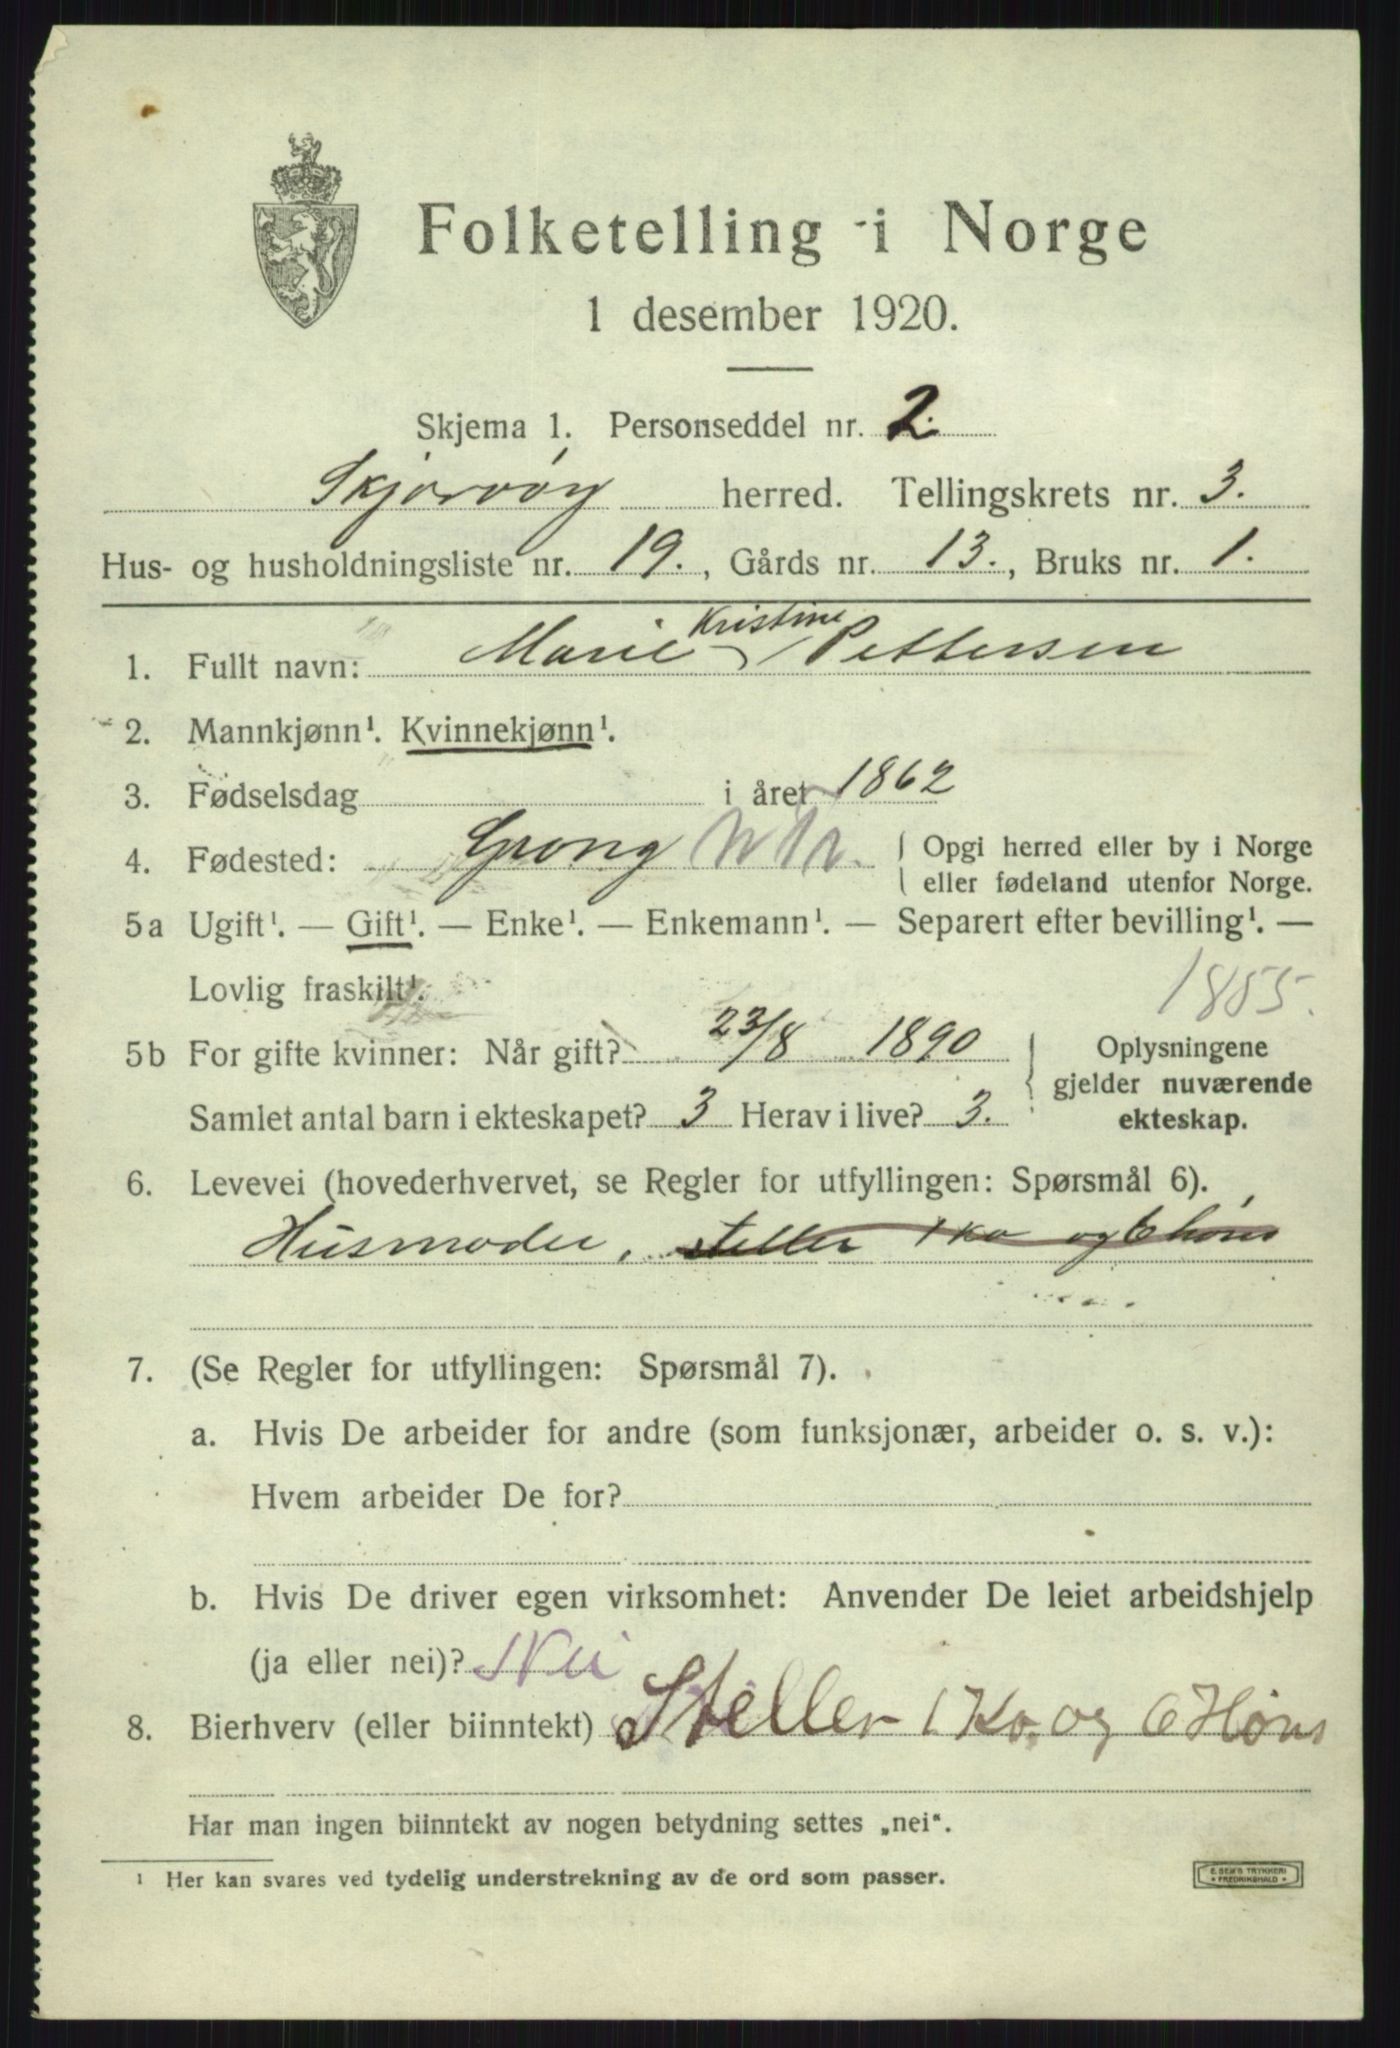 Folketelling i Norge
1 desember 1920.
Skjema 1. Personseddel nr. 2.
Skjervöy herred. Tellingskrets nr. 3.
Hus- og husholdningsliste nr. 19., Gårds nr. 13., Bruks nr. 1.
Kristine
1. Fullt navn: Marie Pettersen
2. Mannkjønn¹. Kvinnekjønn¹.
3. Fødselsdag i året 1862
4. Fødested: Grong { Opgi herred eller by i Norge
eller fødeland utenfor Norge.
5a Ugift¹. — Gift¹. — Enke¹. — Enkemann¹. — Separert efter bevilling¹. —
Lovlig fraskilt¹.
1885.
5b For gifte kvinner: Når gift? 23/8 1890
Samlet antal barn i ekteskapet? 3 Herav i live? 3.
{ Oplysningene
gjelder nuværende
ekteskap.
6. Levevei (hovederhvervet, se Regler for utfyllingen: Spørsmål 6).
Husmoder, steller 1 ko og 6 höns
7. (Se Regler for utfyllingen: Spørsmål 7).
a. Hvis De arbeider for andre (som funksjonær, arbeider o. s. v.):
Hvem arbeider De for?
b. Hvis De driver egen virksomhet: Anvender De leiet arbeidshjelp
(ja eller nei)? Nei
8. Bierhverv (eller biinntekt) Steller 1 Ko. og 6 Höns
Har man ingen biinntekt av nogen betydning settes „nei“.
¹ Her kan svares ved tydelig understrekning av de ord som passer.
E. SEM'S TRYKKERI
* FREDRIKSHALD *